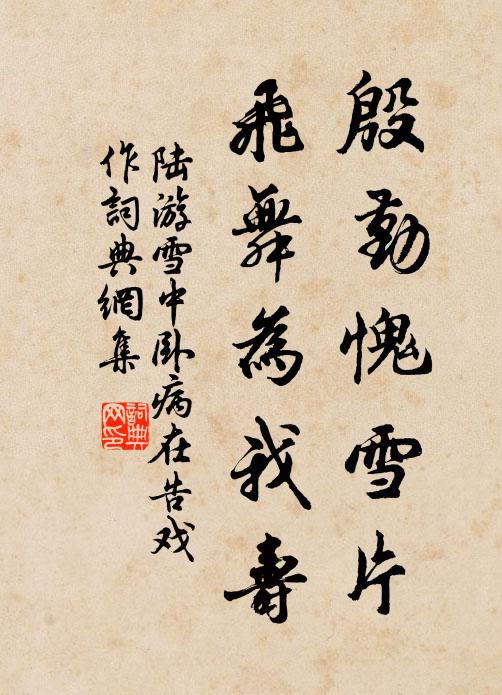 殷勤愧雪片
飛舞為我壽
陆游雪中卧病在告戏
作詞典網集
詞典
网印